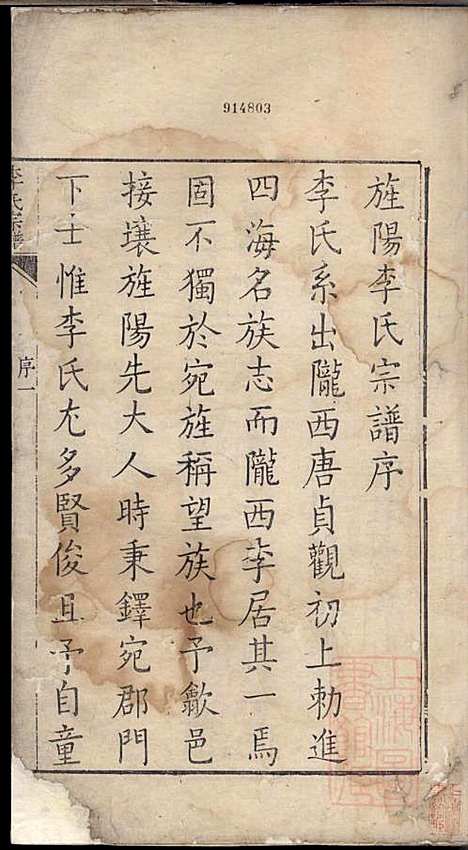 914803
旌陽李氏宗譜序
李氏系出隴西唐貞觀初上勅進
四海名族志而隴西李居其一焉
固不獨於宛旌稱望族也予歙邑
接壤旌陽先大人時秉鐸宛郡門
下士惟李氏尤多賢俊且予自童
李氏宗譜
序一
上海圖書館藏